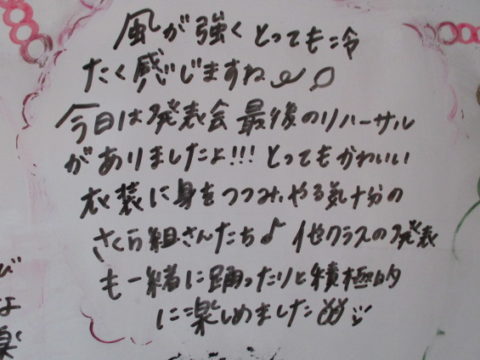 風が強くとっても冷
たく感じますね
今日は発表会最後のリハーサル
がありましたよ!!!とってもかわいい
衣装に身をつつみ、やる気十分の
さくら組さんたち♪他クラスの発表
も一緒に踊ったりと積極的
に楽しめました
び
よ
楽